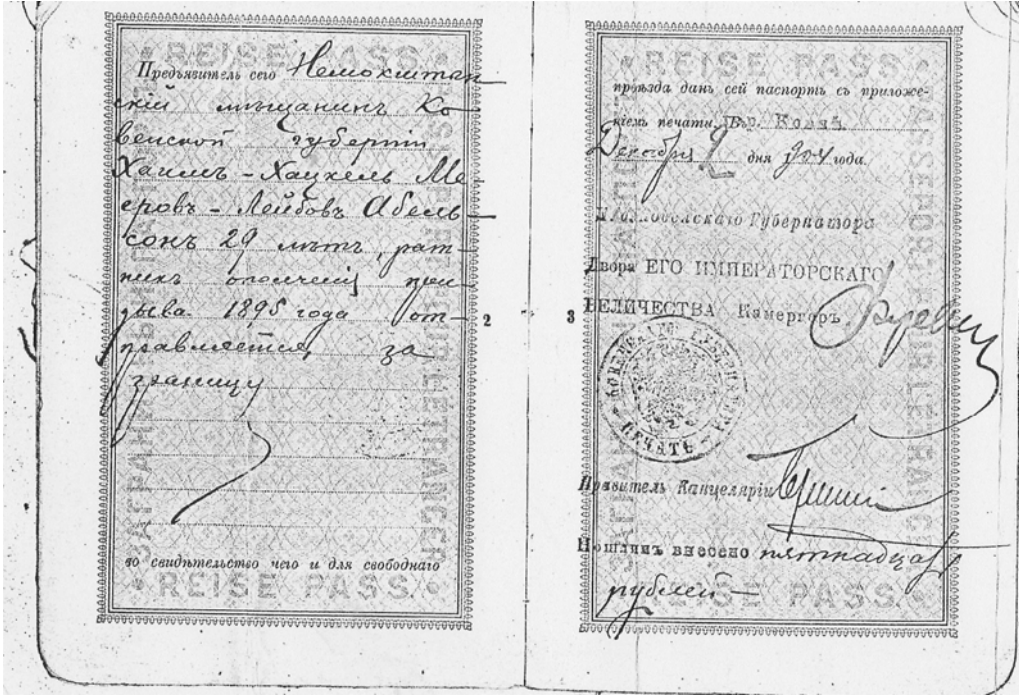 REISE PASS
Предъявитель сего Немокштан-
скій мѣщанинъ Ко-
венской губерніи
Хаимъ-Хацкель Ме-
еровъ-Лейбовъ Абель-
сонъ 29 лѣтъ, рат-
никъ ополченія при-
зыва 1895 года от-
правляется за
границу
во свидѣтельство чего и для свободнаго
REISE PASS
ЗАГРАН
PASSEPORT POUR L'ETRANGER
2
REISE PASS
проѣзда данъ сей паспортъ съ приложе-
ніемъ печати. Гор. Ковна
Декабря 9 дня 904 года.
Губернатора
Двора ЕГО ИМПЕРАТОРСКАГО
ВЕЛИЧЕСТВА Камергеръ
ПЕЧАТЬ
Правитель Канцеляріи
Пошлинъ внесено пятнадцать
рублей
REISE PASS
3